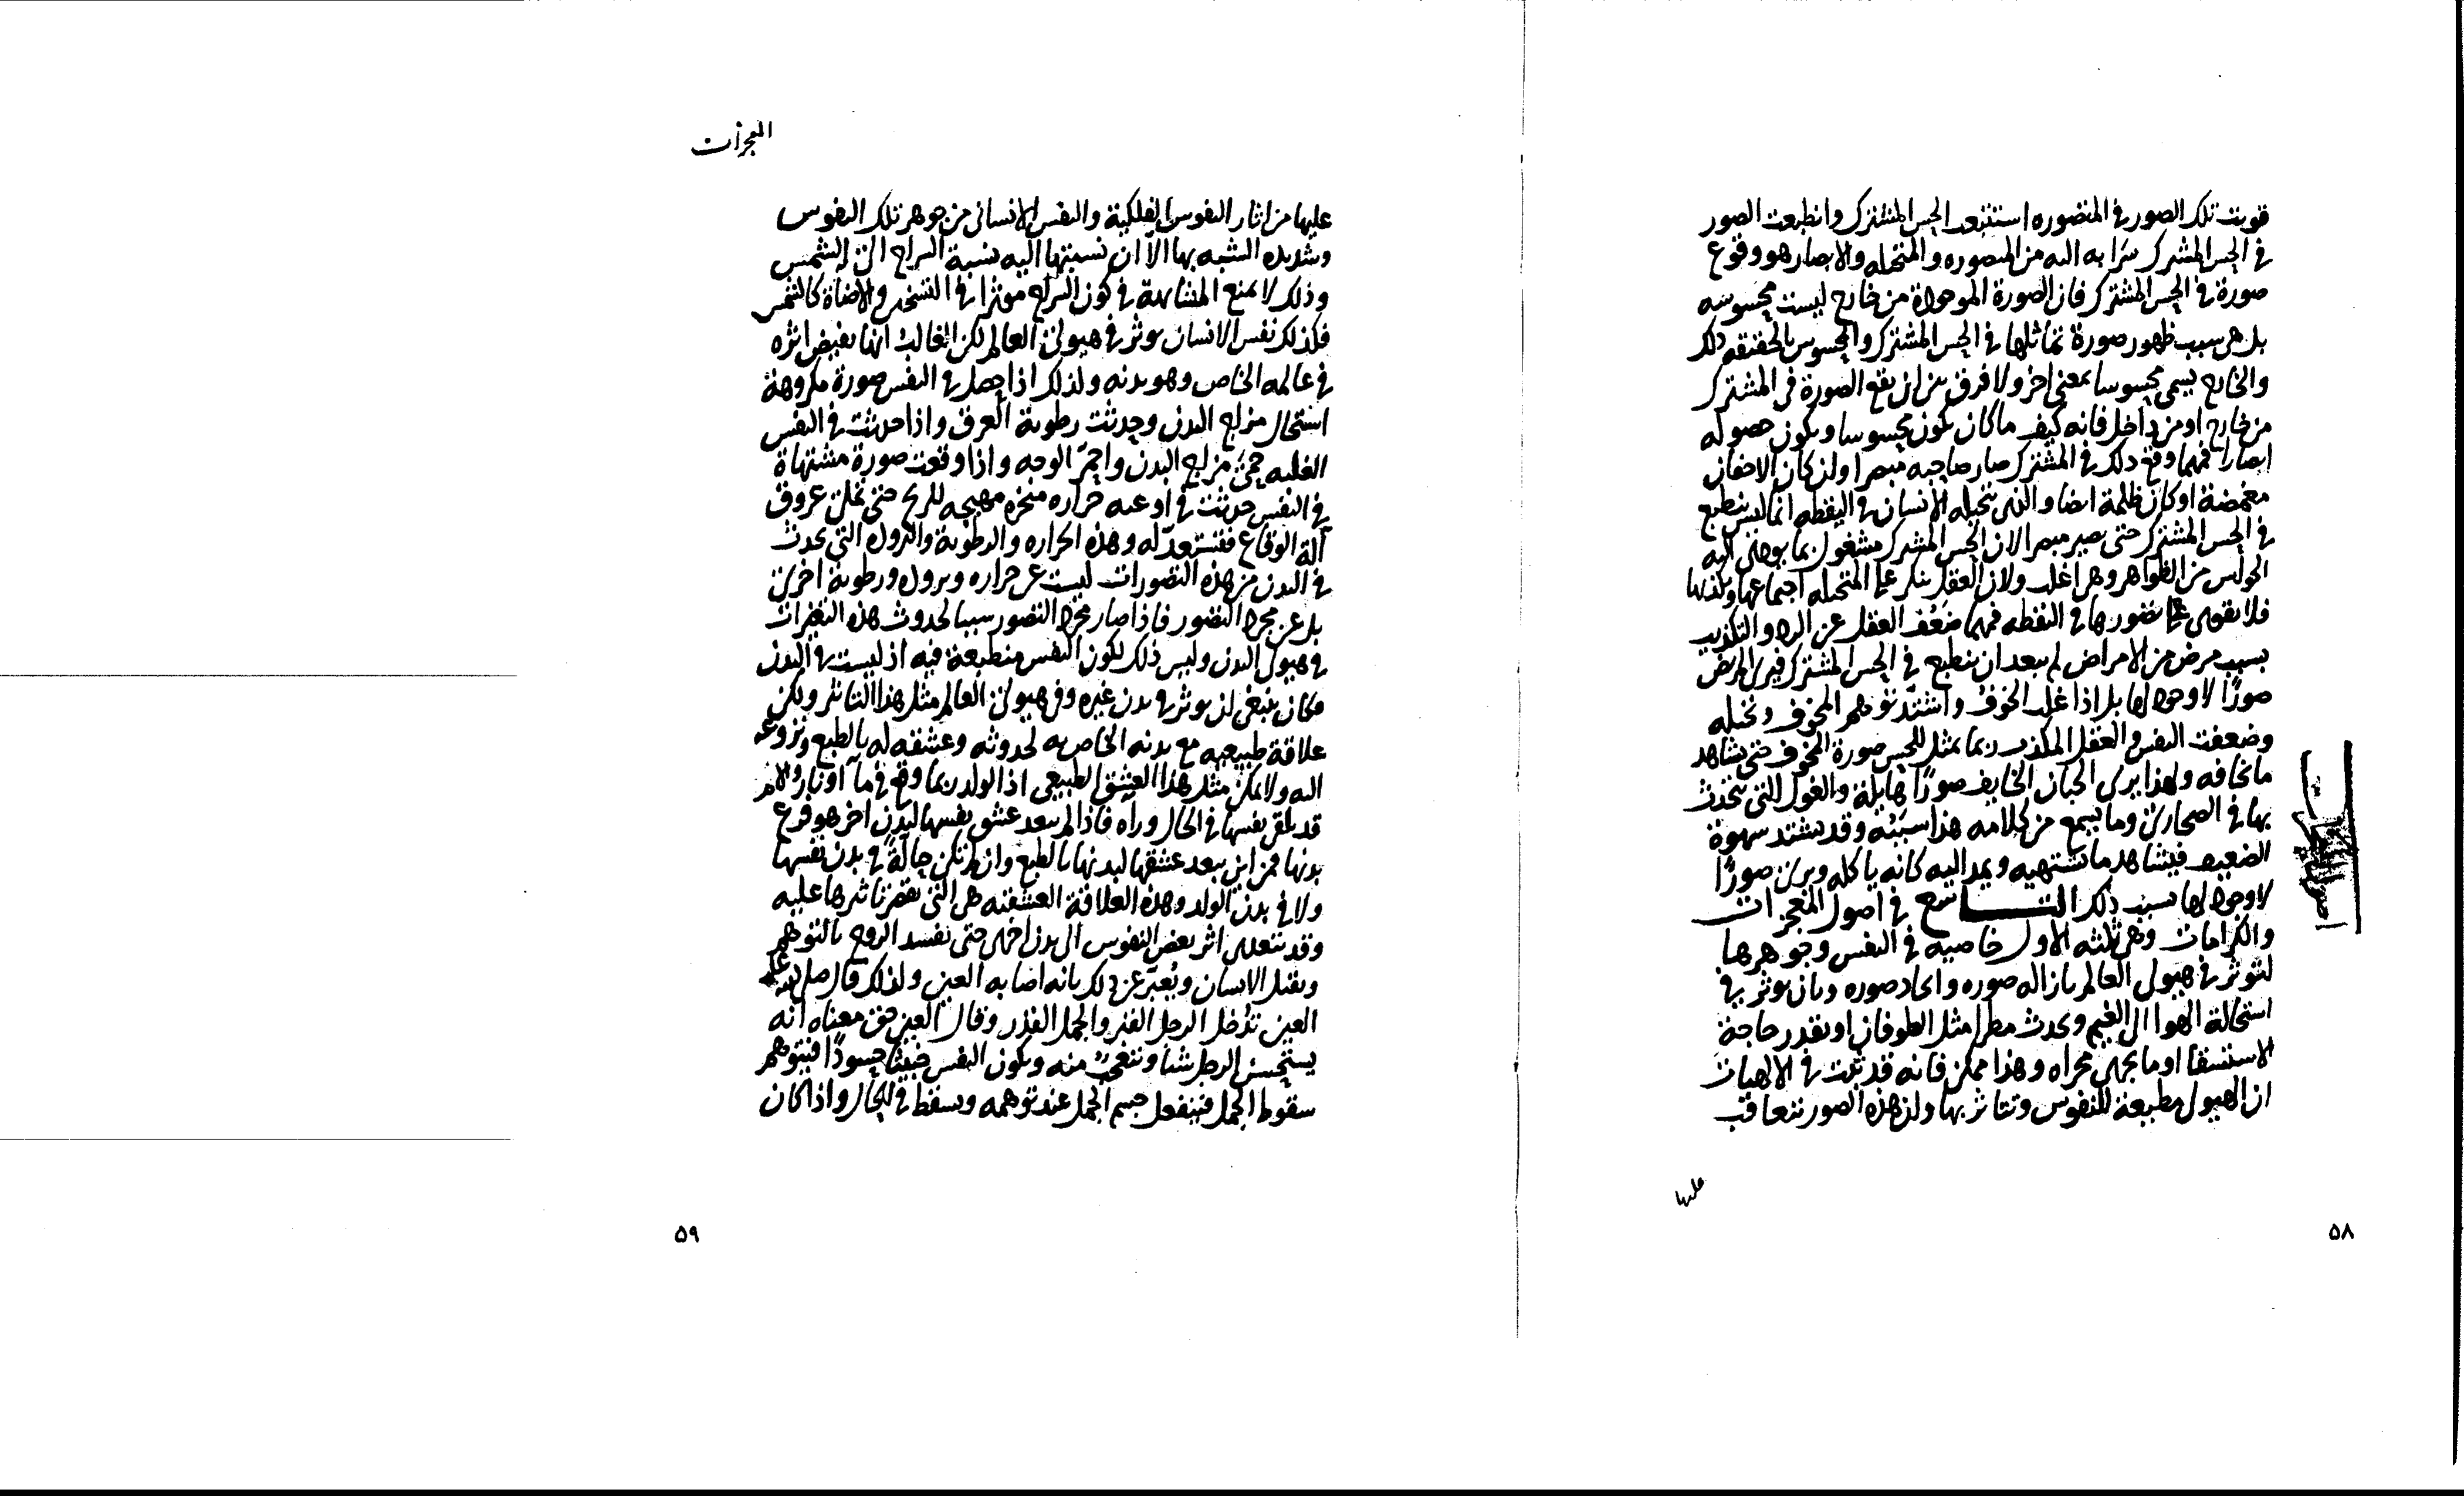 قويت تلك الصور في المتصوره استتبعت الحس المشترك وانطبعت الصور
في الحس المشترك سرايه اليه من المصوره والمتخيله والابصار هو وقوع
صورة في الحس المشترك فان الصورة الموجودة من خارج ليست محسوسه
بل هي سبب ظهور صورة تماثلها في الحس المشترك والمحسوس بالحقيقه ذلك
والخارج يسمى محسوسا بمعنى اخر ولا فرق بين ان يقع الصورة في المشترك
من خارج او من داخل فانه كيف ما كان يكون محسوسا ويكون حصوله
ابصارا فمهما وقع ذلك في المشترك صار صاحبه مبصرا وان كان الاجفان
مغمضة او كان ظلمة ايضا والذي يتخيله الانسان في اليقظه انما ليس ينطبع
في الحس المشترك حتى يصير مبصرا لان الحس المشترك مشغول بما يوصى اليه
الحواس من الظواهر وهي اغلب ولان العقل ينكر على المتخيله اجتماعها ويكذبها
فلا يقوى على تصورها في اليقظه فمهما ضعف العقل عن الرد والتكذيب
بسبب مرض من الامراض لم يبعد ان ينطبع في الحس المشترك فيرى المريض
صورًا لا وجود لها بل اذا غلب الخوف واشتد توهم المخوف وتخيله
وضعفت النفس والعقل المكذب ربما يمثل للحس صورة المخوف حتى يشاهد
ما يخافه ولهذا يرى الجبان الخايف صورًا هايلة والغول التي يتحدث
بها في الصحارى وما يسمع من كلامه هذا سببه وقد تشتد شهوة
الضعيف فيشاهد ما يشتهيه ويمد اليه كانه ياكله ويرى صورًا
لا وجود لها بسبب ذلك التاسع في اصول المعجزات
والكرامات وهي ثلثه الاول خاصيه في النفس وجوهرها
لتوثر في هيولى العالم بازاله صوره وايجاد صوره وبان يوثر في
استحالة الهوا الى الغيم ويحدث مطرا مثل الطوفان او بقدر حاجة
الاستسقا او ما يجرى مجراه وهذا ممكن فانه قد ثبت في الالهيات
ان الهيولى مطيعة للنفوس وتتاثر بها وان هذه الصور تتعاقب
عليها
٥٨
المعجزات
عليها من اثار النفوس الفلكية والنفس الانسانى من جوهر تلك النفوس
وشديده الشبه بها الا ان نسبتها اليه نسبة السراج الى الشمس
وذلك لا يمنع المشابهة في كون السراج موثرا في التسخين والاضاة كالشمس
فكذلك نفس الانسان يوثر في هيولى العالم لكن الغالب انها يفيض اثره
في عالمه الخاص وهو بدنه ولذلك اذا حصل في النفس صورة مكروهة
استحال مزاج البدن وحدثت رطوبة العرق واذا حدثت في النفس
الغلبه حمى مزاج البدن واحمر الوجه واذا وقعت صورة مشتهاة
في النفس حدثت في اوعيه حراره مبخره مهيجه للريح حتى تمتلى عروق
آلة الوقاع فتستعد له وهذه الحراره والرطوبة والبروده التي يحدث
في البدن من هذه التصورات ليست عن حراره وبروده ورطوبة اخرى
بل عن مجرد التصور فاذا صار مجرد التصور سببا لحدوث هذه التغيرات
في هيولى البدن وليس ذلك لكون النفس منطبعة فيه اذ ليست في البدن
فكان ينبغي ان يوثر في بدن غيره وفي هيولى العالم مثل هذا التاثير ولكن
علاقة طبيعيه مع بدنه الخاص به لحدوثه وعشقه له بالطبع ونزوعه
اليه ولا يمكن مثل هذا العشق الطبيعي اذ الولد ربما وقع في ماء او نار والام
قد يلقى نفسها في الحال وراه فاذا لم يبعد عشق نفسها لبدن اخر هو فرع
بدنها فمن اين يبعد عشقها لبدنها بالطبع وان لم تكن حالّة في بدن نفسها
ولا في بدن الولد وهذه العلاقة العشقيه هي التي يقصر تاثيرها عليه
وقد يتعدى اثر بعض النفوس الى بدن اخر حتى يفسد الروح بالتوهم
ويقتل الانسان ويعبر عن ذلك بانه اصابه العين ولذلك قال صلى الله عليه
العين تدخل الرجل القبر والجمل القدر وقال العين حق معناه انه
يستحسن الرجل شيا ويتعجب منه ويكون النفس خبيثا حسودًا فيتوهم
سقوط الجمل فينفعل جسم الجمل عند توهمه ويسقط في الحال واذا كان
٥٩